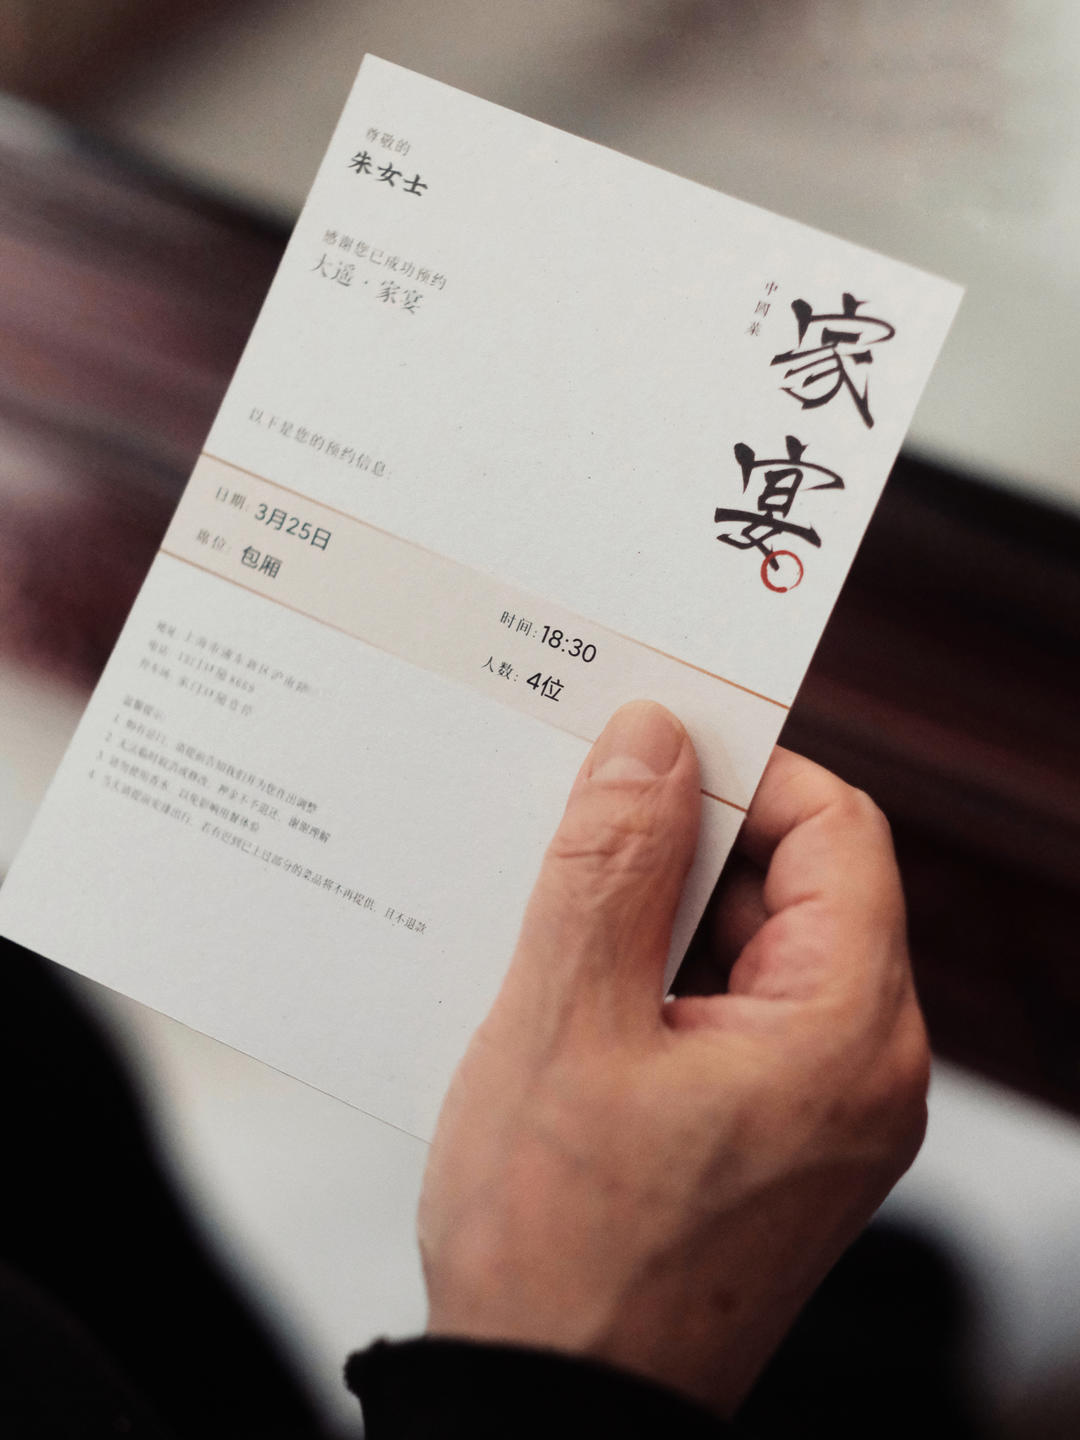 尊敬的
朱女士
感谢您已成功预约
大遥·家宴
中國菜
家宴
以下是您的预约信息:
日期: 3月25日
时间: 18:30
席位: 包厢
人数: 4位
地址: 上海市浦东新区沪南路
电话:
停车场:
温馨提示:
1. 如有忌口, 请提前告知我们并为您作出调整
2. 无法临时取消或修改, 押金不予退还, 谢谢理解
3. 请勿使用香水, 以免影响用餐体验
4. 当天请提前安排出行, 若有迟到已上过部分的菜品将不再提供, 且不退款